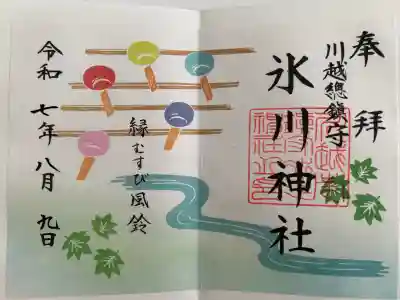 奉拝
川越總鎮守
氷川神社
縁むすび風鈴
令和七年八月九日